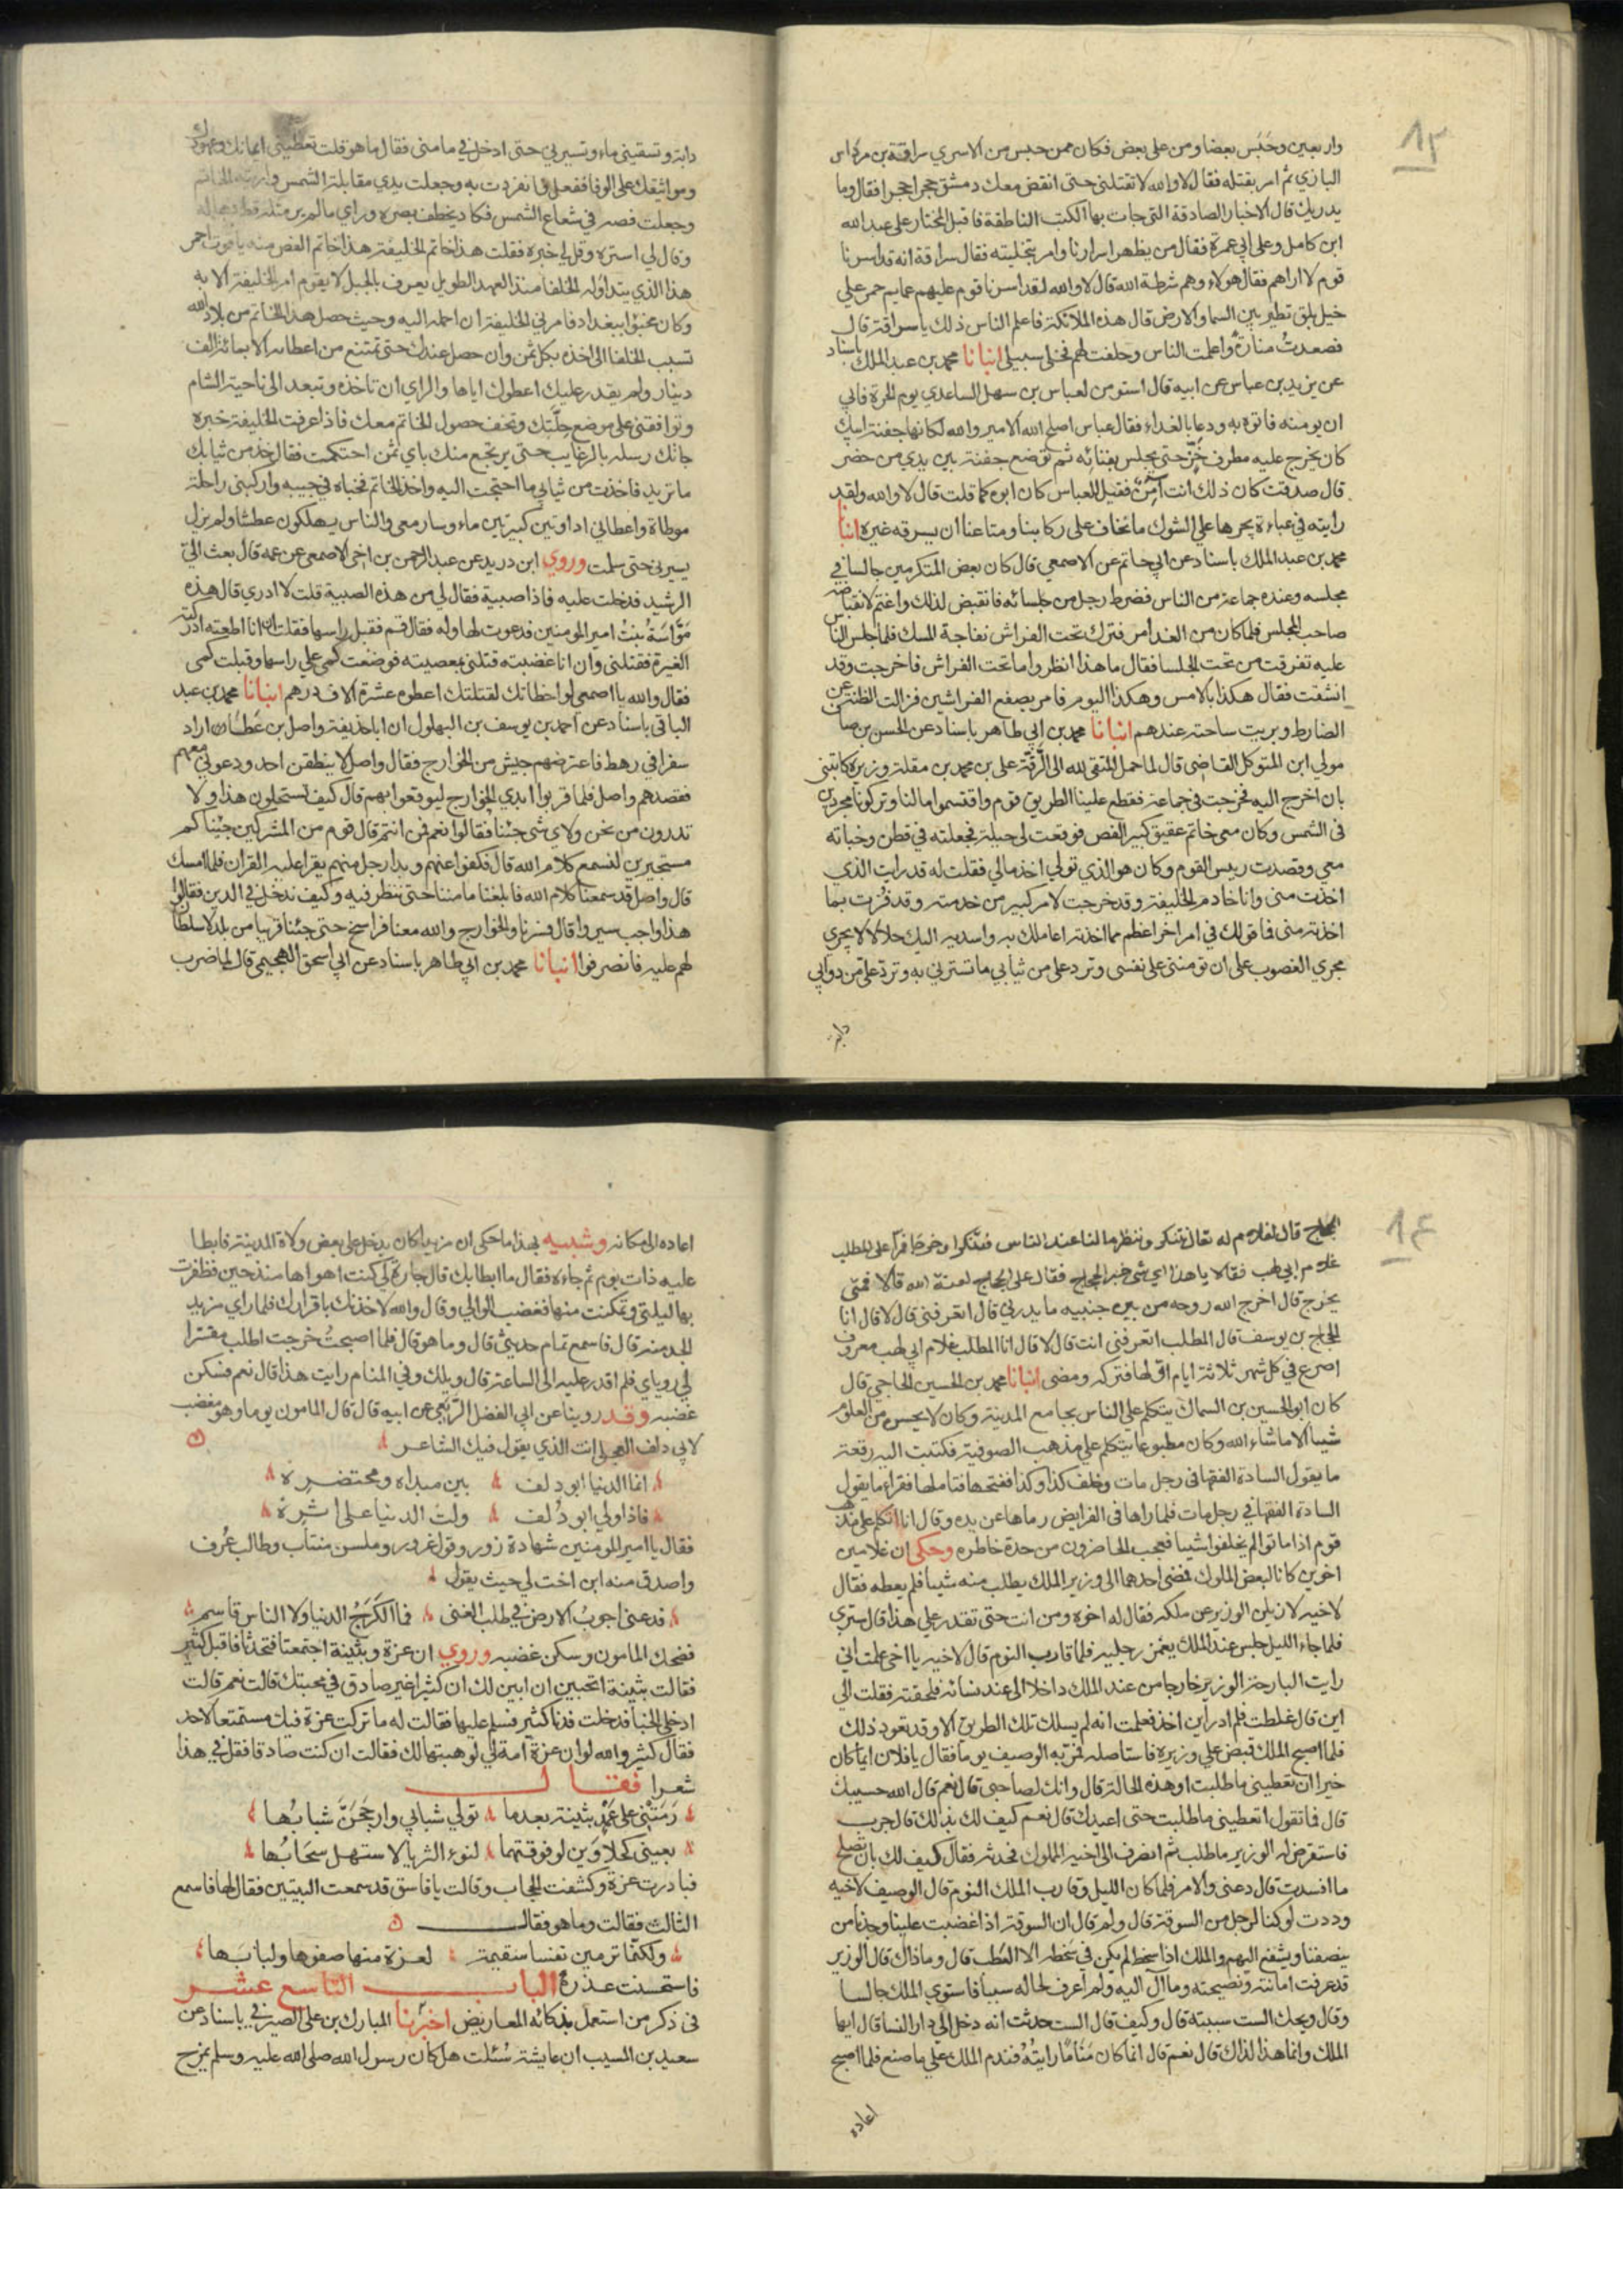 ١٣
واربعين وحبس بعضا ومن على بعض فكان ممن حبس من الاسري سراقة بن مرداس
البازي ثم امر بقتله فقال لا والله لا تقتلني حتى انقض معك دمشق حجرا حجرا فقال وما
يدريك قال الاخبار الصادقة التي جات بها الكتب الناطقة فاقبل المختار على عبد الله
ابن كامل وعلى ابي عمرة فقال من يظهر اسرارنا وامر بتخليته فقال سراقة انه قد اسرنا
قوم لا اراهم فقال هولاء وهم شرطة الله قال لا والله لقد اسرنا قوم عليهم عمايم حمر على
خيل بلق تطير بين السما والارض قال هذه الملائكة فاعلم الناس ذلك يا سراقة قال
فصعدت منارة واعلمت الناس وحلفت لهم فخلى سبيلي انبانا محمد بن عبد الملك باسناد
عن يزيد بن عباس عن ابيه قال استومن لعباس بن سهل الساعدي يوم الحرة فابي
ان يومنه فاتوه به ودعا بالغداء فقال عباس اصلح الله الامير والله لكانها جفنة ابيك
كان يخرج عليه مطرف خز حتى يجلس بفنائه ثم توضع جفنة بين يدي من حضر
قال صدقت كان ذلك انت آمن فقيل للعباس كان ابوه كما قلت قال لا والله ولقد
رايته في عباءة يجرها على الشوك ما نخاف على ركابنا ومتاعنا ان يسرقه غيره انبانا
محمد بن عبد الملك باسناد عن ابي حاتم عن الاصمعي قال كان بعض المتكرمين جالسا في
مجلسه وعنده جماعة من الناس فضرط رجل من جلسائه فانقبض لذلك واغتم لانقباضه
صاحب المجلس فلما كان من الغد امر فترك تحت الفراش نفاجة المسك فلما جلس الناس
عليه تفرقت من تحت الجلسا فقال ما هذا انظروا ما تحت الفراش فاخرجت وقد
انشقت فقال هكذا بالامس وهكذا اليوم فامر يصفع الفراشين فزالت الظنة عن
الضارط وبريت ساحته عندهم انبانا محمد بن ابي طاهر باسناد عن الحسن بن صا
مولي ابن المتوكل القاضي قال لما حمل المتقي لله الى الرقة على بن محمد بن مقلة وزيره كاتبني
بان اخرج اليه فخرجت في جماعة فقطع علينا الطريق قوم واقتسموا مالنا وتركونا مجردين
في الشمس وكان معي خاتم عقيق كبير الفص فوقعت لى حيلة فجعلته في قطن وخباته
معي وقصدت رييس القوم وكان هو الذي تولي اخذ مالي فقلت له قد رايت الذي
اخذت مني وانا خادم الخليفة وقد خرجت لامر كبير من خدمته وقد فزت بما
اخذته مني فما قولك في امر اخر اعظم مما اخذته اعاملك به واسديه اليك حلالا لا يجري
مجري الغصوب على ان تومنني على نفسى وترد على من ثيابي ما تسترني به وترد على من دوابي
دابة
دابة وتسقيني ماء وتسير بي حتى ادخل في مامني فقال ما هو قلت تعطيني ايمانك وعهودك
ومواثيقك على الوفا ففعل فانفردت به وجعلت يدي مقابلة الشمس واريته الخاتم
وجعلت فصه في شعاع الشمس فكاد يخطف بصره وراي ما لم ير مثله قط فهاله
وقال لي استره وقل لي خبره فقلت هذا خاتم الخليفة هذا خاتم الفص منه ياقوت احمر
هذا الذي يتداوله الخلفا منذ العهد الطويل يعرف بالجبل لا يقوم امر الخليفة الا به
وكان مخبوا ببغداد فامرني الخليفة ان احمله اليه وحيث حصل هذا الخاتم من بلاد الله
تسبب الخلفا الى اخذه بكل ثمن وان حصل عندك حتى تمتنع من اعطائه الا بمائة الف
دينار ولم يقدر عليك اعطوك اياها والراي ان تاخذه وتبعد الى ناحية الشام
وتوافقني على موضع حلتك وتخف حصول الخاتم معك فاذا عرفت الخليفة خبره
جاتك رسله بالرغايب حتى يرتجع منك باي ثمن احتكمت فقال خذ من ثيابك
ما تريد فاخذت من ثيابي ما احتجت اليه واخذ الخاتم فخباه في جيبه واركبني راحلة
موطاة واعطاني اداوتين كبيرتين ماء وسار معي والناس يهلكون عطشا ولم يزل
يسيرني حتى سلمت وروي ابن دريد عن عبد الرحمن بن اخي الاصمعي عن عمه قال بعث الي
الرشيد فدخلت عليه فاذا صبية فقال لي من هذه الصبية قلت لا ادري قال هذه
مواسة بنت امير المومنين فدعوت لها وله فقال قم فقبل راسها فقلت ان انا اطعته ادركته
الغيرة فقتلني وان انا عصيته قتلني بمعصيته فوضعت كمي على راسها وقبلت كمى
فقال والله يا اصمعي لو اخطاتك لقتلتك اعطوه عشرة الاف درهم انبانا محمد بن عبد
الباقي باسناد عن احمد بن يوسف بن البهلول ان ابا حذيفة واصل بن عطا اراد
سفرا في رهط فاعترضهم جيش من الخوارج فقال واصل لا ينطقن احد ودعوني معهم
فقصدهم واصل فلما قربوا ابدي الخوارج ليوقعوا بهم قال كيف تستحلون هذا ولا
تدرون من نحن ولاي شي جئنا فقالوا نعم فمن انتم قال قوم من المشركين جئناكم
مستجيرين لنسمع كلام الله قال فكفوا عنهم وبدا رجل منهم يقرا عليه القران فلما امسك
قال واصل قد سمعنا كلام الله فابلغنا مامننا حتى ننظر فيه وكيف ندخل في الدين فقالوا
هذا واجب سيروا قال فسرنا والخوارج والله معنا فراسخ حتى جئنا قريبا من بلد لا سلطان
لهم عليه فانصرفوا انبانا محمد بن ابي طاهر باسناد عن ابي اسحق الهجيمي قال لما ضرب
١٤
الحجاج قال لغلام له تعال نتنكر وننظر ما لنا عند الناس فتنكرا وخرجا فمرا على المطلب
غلام ابي لهب فقالا يا هذا اي شي خبر الحجاج فقال على الحجاج لعنة الله قالا فمتى
يخرج قال اخرج الله روحه من بين جنبيه ما يدريني قال اتعرفني قال لا قال انا
الحجاج بن يوسف قال المطلب اتعرفني انت قال لا قال انا المطلب غلام ابي لهب معروف
اصرع في كل شهر ثلاثة ايام اولها فتركه ومضى انبانا محمد بن الحسين الحاجي قال
كان ابو الحسين بن السماك يتكلم على الناس بجامع المدينة وكان لا يحسن من العلوم
شيا الا ما شاء الله وكان مطبوعا يتكلم على مذهب الصوفية فكتبت اليه رقعة
ما يقول السادة الفقها في رجل مات وخلف كذا وكذا ففتحها فتاملها فقراء ما يقول
السادة الفقها في رجل مات فلما راها في الفرايض رماها عن يده وقال انا اتكلم على مذهب
قوم اذا ماتوا لم يخلفوا شيا فعجب الحاضرون من حدة خاطره وحكى ان غلامين
اخوين كانا لبعض الملوك فمضى احدهما الى وزير الملك يطلب منه شيا فلم يعطه فقال
لاخيه لازيلن الوزير عن ملكه فقال له اخوه ومن انت حتى تقدر على هذا قال ستري
فلما جاء الليل جلس عند الملك يغمز رجليه فلما قارب النوم قال لاخيه يا اخي علمت اني
رايت البارحة الوزير خارجا من عند الملك داخلا الى عند نسائه فلحقته فقلت الى
اين قال غلطت فلم ادر اين اخذ فعلمت انه لم يسلك تلك الطريق الا وقد تعود ذلك
فلما اصبح الملك قبض على وزيره فاستاصله فمر به الوصيف يوما فقال يا فلان ايما كان
خيرا ان تعطيني ما طلبت او هذه الحالة قال وانك لصاحبي قال نعم قال الله حسيبك
قال فما تقول اتعطيني ما طلبت حتى اعيدك قال نعم كيف لك بذلك قال جرب
فاستقرض له الوزير ما طلب ثم انصرف الى اخيه المملوك فحدثه فقال كيف لك بان تصلح
ما افسدت قال دعني والامر فلما كان الليل وقارب الملك النوم قال الوصيف لاخيه
وددت لو كنا لرجل من السوقة قال ولم قال ان السوقة اذا غضبت علينا وجدنا من
ينصفنا ويشفع اليهم والملك اذا سخط لم يكن في سخطه الا العطب قال وما ذاك قال الوزير
قد عرفت امانته ونصيحته وما آل اليه ولم اعرف لحاله سببا فاستوي الملك جالسا
وقال ويحك الست سببته قال وكيف قال الست حدثت انه دخل الي دار النسا قال ايها
الملك وانما هذا لذاك قال نعم قال انما كان مناما رايته فندم الملك على ما صنع فلما اصبح
اعاده
اعاده الى مكانه وشبيه بهذا ما حكى ان مزبدا كان يدخل على بعض ولاة المدينة فابطا
عليه ذات يوم ثم جاءه فقال ما ابطا بك قال جارة لي كنت اهواها منذ حين فظفرت
بها ليلتي وتمكنت منها فغضب الوالي وقال والله لاخذنك باقرارك فلما راي مزبد
الجد منه قال فاسمع تمام حديثي قال وما هو قال فلما اصبحت خرجت اطلب مفسرا
لي روياي فلم اقدر عليه الى الساعة قال ويلك وفي المنام رايت هذا قال نعم فسكن
غضبه وقد روينا عن ابي الفضل الربعي عن ابيه قال قال المامون يوما وهو مغضب
لابي دلف العجلي انت الذي يقول فيك الشاعر
انما الدنيا ابو دلف بين مبداه ومحتضره
فاذا ولي ابو دلف ولت الدنيا على اثره
فقال يا امير المومنين شهادة زور وقول غرور وملسن منتاب وطالب عرف
واصدق منه ابن اخت لي حيث يقول
فدعني اجوب الارض في طلب الغنى فما الكرج الدنيا ولا الناس قاسم
فضحك المامون وسكن غضبه وروي ان عزة وبثينة اجتمعتا فتحدثا فاقبل كثير
فقالت بثينة اتحبين ان ابين لك ان كثيرا غير صادق في محبتك قالت نعم قالت
ادخلي الخبا فدخلت فدنا كثير فسلم عليها فقالت له ما تركت عزة فيك مستمتعا لاحد
فقال كثير والله لو ان عزة امة لي لوهبتها لك فقالت ان كنت صادقا فقل في هذا
شعرا فقال
رمتني على عمد بثينة بعدما تولي شبابي وارجحن شبابها
بعيني كحلاوين لو فوقتهما لنوء الثريا لاستهل سحابها
فبادرت عزة وكشفت الحجاب وقالت يا فاسق قد سمعت البيتين فقال لها فاسمع
الثالث فقالت وما هو فقال
ولكنما ترمين نفسا سقيمة لعزة منها صفوها ولبابها
فاستحسنت عذره الباب التاسع عشر
في ذكر من استعمل بذكائه المعاريض اخبرنا المبارك بن على الصيرفي باسناد عن
سعيد بن المسيب ان عايشة سئلت هل كان رسول الله صلى الله عليه وسلم يمزح